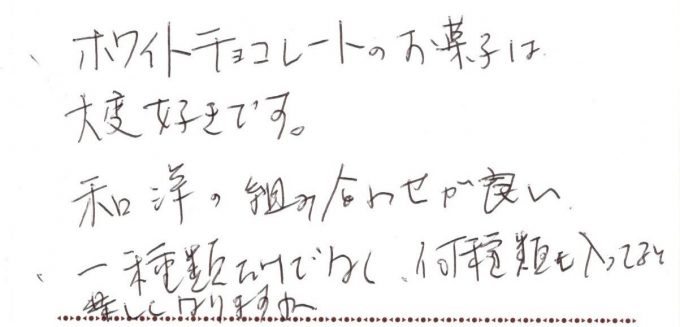 、ホワイトチョコレートのお菓子は
大変好きです。
和洋の組み合わせが良い
、一種類だけでなく、何種類も入ってて
楽しくなりますね